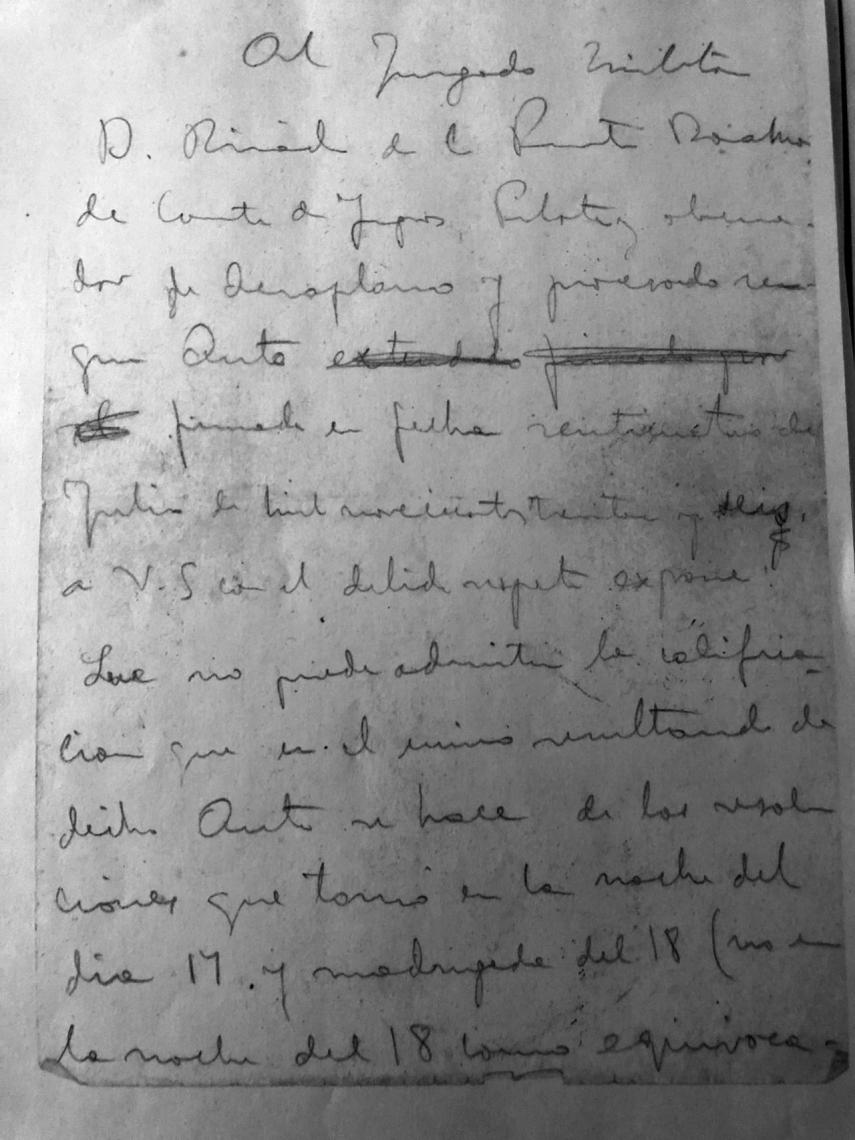 Al Juzgado Militar
D. Ricardo de la Puente Bahamo
de Comte de Ingros, Piloto y observa-
dor de Aeroplano y procesado se-
gun Auto extendido firmado por
el firmado en fecha veinticuatro de
Julio de mil novecientos treinta y seis,
a V.S con el debido respeto expone:
Que no puede admitir la califica-
cion que en el resultando de
dicho Auto se hace de las resolu
ciones que tomó en la noche del
dia 17 y madrugada del 18 (no en
la noche del 18 como equivoca-